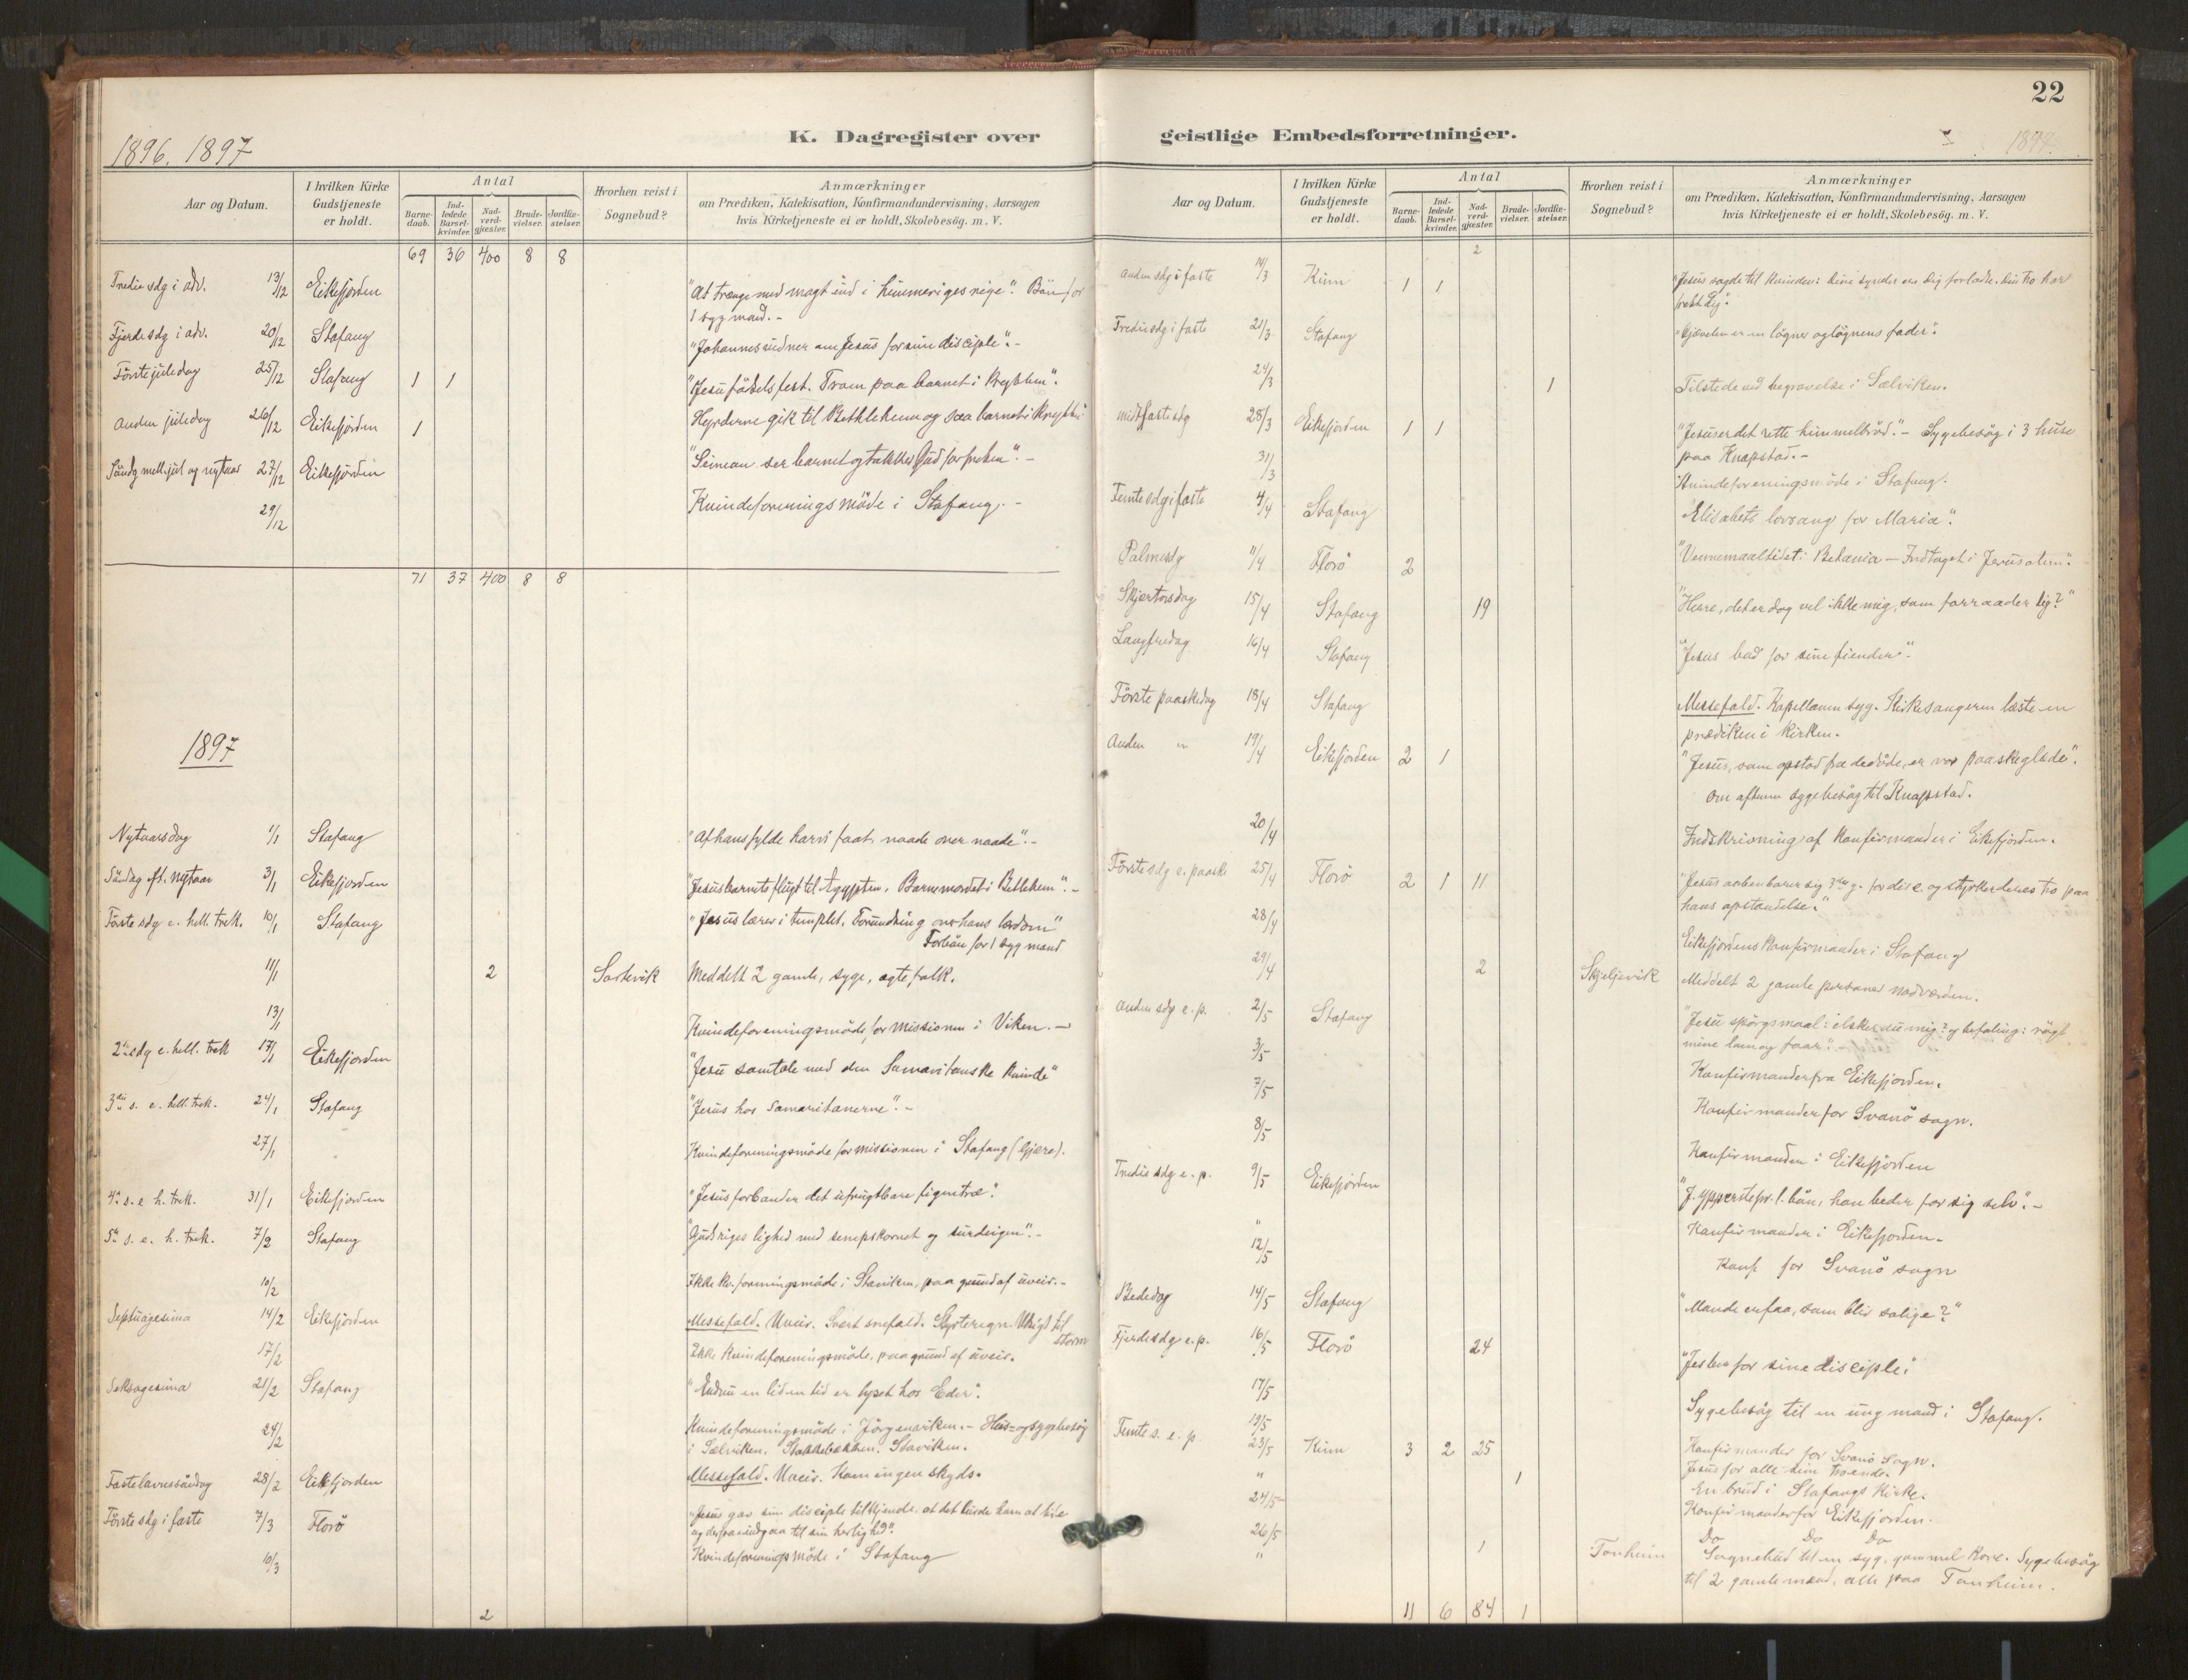 22
1896. 1897
K. Dagregister over
geistlige Embedsforretninger.
Aar og Datum.
I hvilken Kirke Gudstjeneste er holdt.
Antal
Barnedaab.
Indledede Barselkvinder.
Nadverdgjæster.
Brudevielser.
Jordfæstelser.
Hvorhen reist i Sognebud?
Anmærkninger
om Prædiken, Katekisation, Konfirmandundervisning, Aarsagen
hvis Kirketjeneste ei er holdt, Skolebesög. m. V.
69 36 400 8 8
Tredie sdg i adv. 13/12 Eikefjorden "At trænge med magt ind i himmeriges rige". Bön for
1 syg mand.-
Fjerde sdg i adv. 20/12 Stafang "Johannes vidner om Jesus for sine disciple".-
Förste juledag 25/12 Stafang 1 1 "Jesu födselsfest. Troen paa barnet i krybben".
Anden juledag 26/12 Eikefjorden 1 Hyrderne gik til Bethlehem og saa barnet i krybben
Söndg mell. jul og nytaar 27/12 Eikefjorden "Simeon ser barnet og takker Gud for freden".-
29/12 Kvindeforeningsmöde i Stafang.-
71 37 400 8 8
1897
Nytaarsdag 1/1 Stafang "Af hans fylde har vi faat naade over naade".-
Söndag eft. nytaar 3/1 Eikefjorden "Jesusbarnets flugt til Ægypten. Barnemordet i Betlehem".-
Förste sdg e. hell. trek. 10/1 Stafang "Jesus lærer i templet. Forundring over hans lærdom"
Forbön for 1 syg mand
11/1 2 Meddelt 2 gamle, syge, ægtefolk.
13/1 Kvindeforeningsmöde for missionen i Viken.-
2den sdg e. hell. trek 17/1 Eikefjorden "Jesu samtale med den Samaritanske kvinde"
3die s. e. hell. trek. 24/1 Stafang "Jesus hos Samaritanerne".-
27/1 Kvindeforeningsmöde for missionen i Stafang (Gjære).
4de s. e. h. trek. 31/1 Eikefjorden "Jesus forbander det ufrugtbare figentræ".
5te s. e. h. trek. 7/2 Stafang "Guds riges lighed med senepskornet og surdeigen".-
10/2 Ikke kv.foreningsmöde i Staviken, paa grund af uveir.-
Septuagesima 14/2 Eikefjorden Messefald. Uveir. Svert snefald. Styrteregn. Veigt til
storm
17/2 Ikke kvindeforeningsmöde, paa grund af uveir.
Seksagesima 21/2 Stafang "Endnu en liden tid er lyset hos Eder".
24/2 Kvindeforeningsmöde i Jörgenviken.- Hus- og sygebesög
i Sælviken. Stakkebakken. Staviken.
Fastelavnssöndag 28/2 Eikefjorden Messefald. Uveir. Kom ingen skyds.
Förste sdg i faste 7/3 Florö "Jesus gav sine disciple tilkjende, at det burde ham at lide
og derpaa indgaa til sin herlighed".
10/3 Kvindeforeningsmöde i Stafang
2
Aar og Datum.
I hvilken Kirke Gudstjeneste er holdt.
Antal
Barnedaab.
Indledede Barselkvinder.
Nadverdgjæster.
Brudevielser.
Jordfæstelser.
Hvorhen reist i Sognebud?
Anmærkninger
om Prædiken, Katekisation, Konfirmandundervisning, Aarsagen
hvis Kirketjeneste ei er holdt, Skolebesög. m. V.
2
Anden sdg i faste 14/3 Kinn 1 1 "Jesus sagde til kvinden: dine synder er dig forladte. Din tro har
frelst dig".
Tredie sdg i faste 21/3 Stafang "Djævelen er en lögner og lögnens fader".
24/3 1 Tilstede ved begravelse i Sælviken.
Midfastesdg 28/3 Eikefjorden 1 1 "Jesus er det rette himmelbröd".- Sygebesög i 3 huse
paa Knapstad.-
31/3 Kvindeforeningsmöde i Stafang.
Femte sdg i faste 4/4 Stafang "Elisabets lovsang for Maria".
Palmesdg 11/4 Florö 2 "Vennemaaltidet i Betania - Indtoget i Jerusalem".
Skjærtorsdag 15/4 Stafang 19 "Herre, det er dog vel ikke mig, som forraader dig?"
Langfredag 16/4 Stafang "Jesus bad for sine fiender".
Förste paaskedag 18/4 Stafang Messefald. Kapellanen syg. Kirkesangeren læste en
prædiken i kirken.
Anden " 19/4 Eikefjorden 2 1 "Jesus, som opstod fra de döde, er vor paaskeglæde".
Om aftenen sygebesög til Knapstad.
20/4 Indskrivning af konfirmander i Eikefjorden.
Förste sdg e. paaske 25/4 Florö 2 1 11 "Jesus aabenbarer sig 3die g. for disc. og styrker deres tro paa
hans opstandelse."
28/4 Eikefjordens konfirmander i Stafang
29/4 2 Skjeljevik Meddelt 2 gamle personer nadverden.
Anden sdg e. p. 2/5 Stafang "Jesu spörgsmaal: elsker du mig? og befaling: vogt
mine lam og faar".-
3/5 Konfirmander fra Eikefjorden.
7/5 Konfirmander for Svanö sogn.
8/5 Konfirmander i Eikefjorden
Tredie sdg e. p. 9/5 Eikefjorden "J. ypperstepr.l. bön, han beder for sig selv".-
" Konfirmander i Eikefjorden.
12/5 Konf for Svanö sogn
Bededag 14/5 Stafang "Monde er faa, som blir salige?"
Fjerde sdg e. p. 16/5 Florö 24 "Jes ber for sine disciple."
17/5 Sygebesög til en ung mand i Stafang.
19/5 Konfirmander for Svanö Sogn.
Femte s. e. p. 23/5 Kinn 3 2 25 Jesus for alle sine troende.
" 1 En brud i Stafangs Kirke.
24/5 Konfirmander for Eikefjorden.
26/5 Do Do Do
" 1 Tonheim Sognebud til en syg, gammel kone. Sygebesög
til 2 gamle mænd, alle paa Tonheim.
11 6 84 1